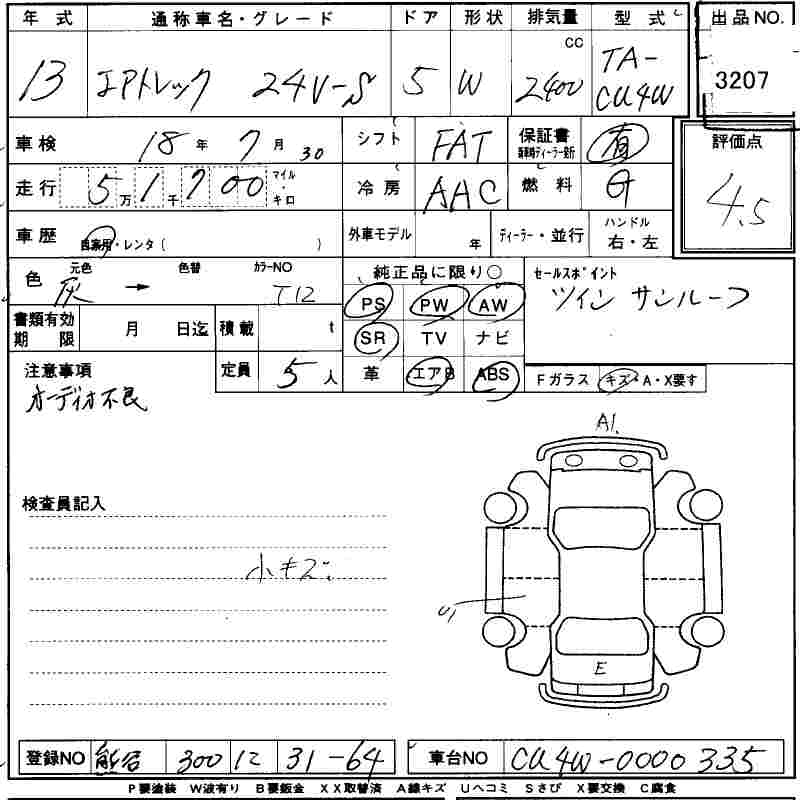 年式 通称車名・グレード ドア 形状 排気量 型式 出品NO.
13 エアトレック 24V-S 5 W 2400 CC TA-CU4W 3207
車検 18年 7月 30 シフト FAT 保証書 有 評価点
走行 5万 1千 700 マイル・キロ 冷房 AAC 燃料 G 4.5
車歴 自家用・レンタ( ) 外車モデル 年 ディーラー・並行 ハンドル 右・左
色 元色 灰 → 色替 カラーNO T12 純正品に限り○ セールスポイント
PS PW AW ツイン サンルーフ
書類有効期限 月 日迄 積載 t SR TV ナビ
注意事項 定員 5人 革 エアB ABS Fガラス キズ・A・X要す
オーディオ不良
A1
検査員記入
小キズ
U1
E
登録NO 熊谷 300 に 31-64 車台NO CU4W-0000335
P要塗装 W波有り B要鈑金 XX取替済 A線キズ Uヘコミ Sさび X要交換 C腐食